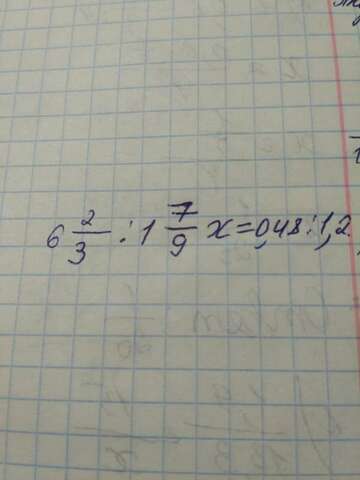 6 2/3 : 1 7/9 x = 0,48 : 1,2